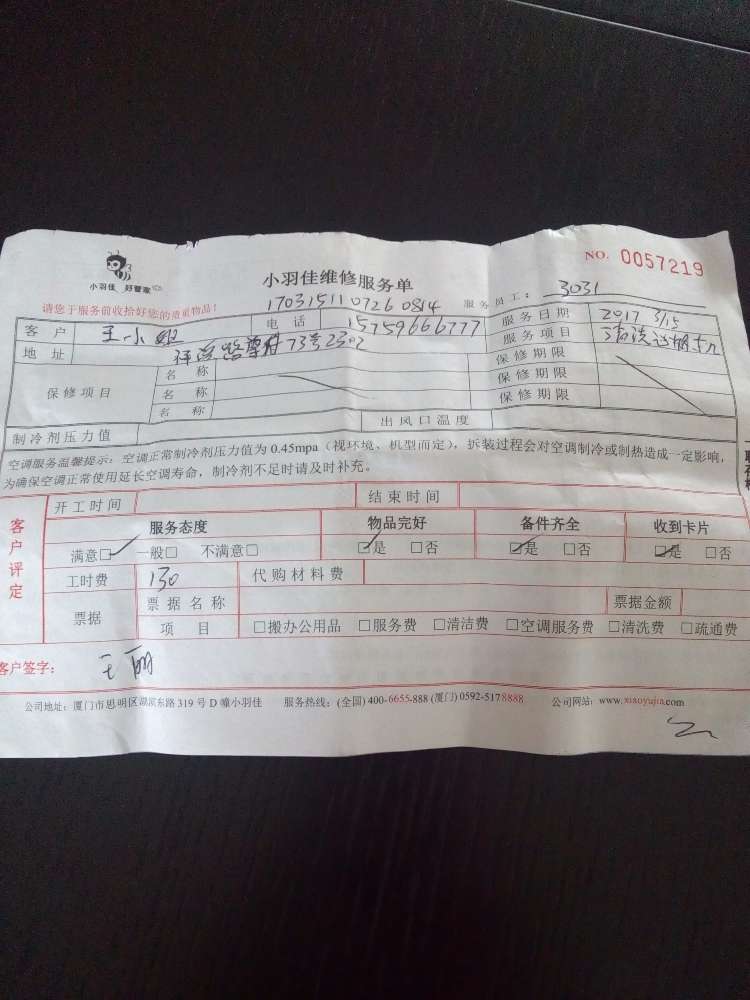 NO. 0057219
小羽佳 好管家
小羽佳维修服务单
请您于服务前收拾好您的贵重物品!
170315110726 0814
服务员工: 3031
客户 王小姐 电话 15759666777 服务日期 2017 3/15
地址 73号2302 服务项目 清洗
保修项目 名称 保修期限
名称 保修期限
名称 保修期限
制冷剂压力值 出风口温度
空调服务温馨提示: 空调正常制冷剂压力值为 0.45mpa (视环境、机型而定), 拆装过程会对空调制冷或制热造成一定影响,
为确保空调正常使用延长空调寿命, 制冷剂不足时请及时补充。
客户评定
开工时间 结束时间
服务态度 物品完好 备件齐全 收到卡片
满意□ 一般□ 不满意□ □是 □否 □是 □否 □是 □否
工时费 130 代购材料费
票据 票据名称 票据金额
项目 □搬办公用品 □服务费 □清洁费 □空调服务费 □清洗费 □疏通费
客户签字: 王丽
公司地址: 厦门市思明区湖滨东路 319 号 D 幢小羽佳 服务热线: (全国) 400-6655-888 (厦门) 0592-5178888 公司网站: www.xiaoyujia.com